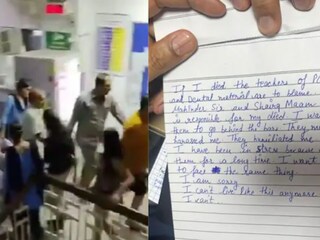 If I died the teachers of PC
and Dental material are to blame
Mahinder Sir and Shairg Maam
is responsible for my died I wa
them to go behind the bars They m
harassed me. They humiliated me
I have been in stress because
them for a long time I want
to face the same thing
I am sorry
I can't live like this anymore
I can't